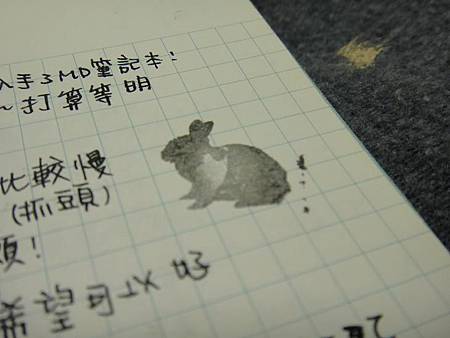 入手3MD筆記本!
~打算等明
比較慢
(抓頭)
頭!
希望可以好